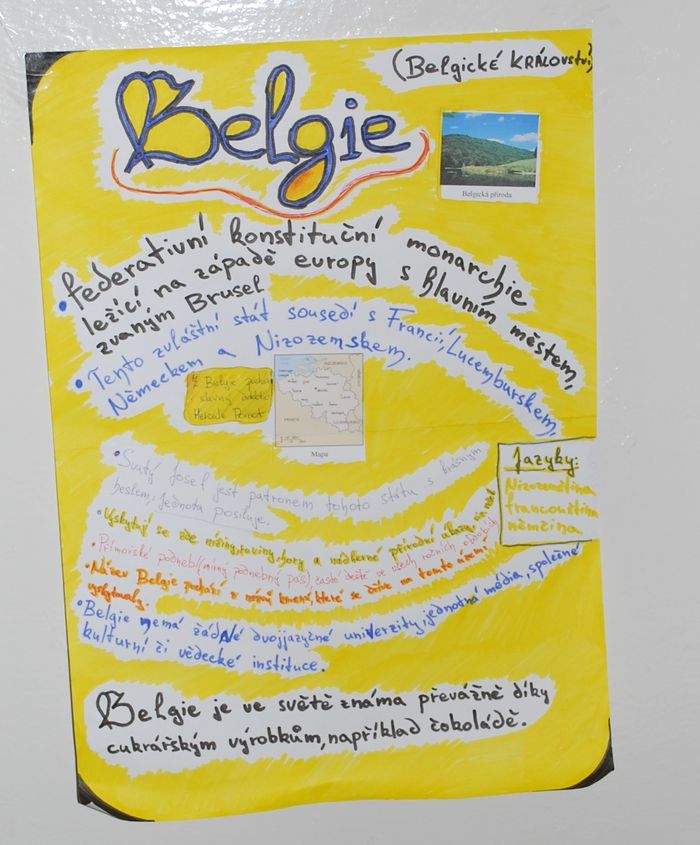 (Belgické KRÁLovství)
Belgie
Belgická příroda
• federativní konstituční monarchie
ležící na západě europy s hlavním městem,
zvaným Brusel
• Tento zvláštní stát sousedí s Francií, Lucemburskem,
Německem a Nizozemskem.
Z Belgie pochází
slavný
Hercule Poirot
Mapa
Jazyky:
Nizozemština
francouzština
němčina
• Svatý Josef jest patronem tohoto státu s krásným
heslem: Jednota posiluje.
• Vyskytují se zde nížiny, roviny, hory a nádherné přírodní úkazy.
• Přímořské podnebí (mírný podnebný pás), časté deště ve všech ročních obdobích
• Název Belgie pochází z názvů kmenů, které se dříve na tomto území
vyskytovaly.
• Belgie nemá žádNé dvojjazyčné univerzity, jednotná média, společné
kulturní či vědecké instituce.
Belgie je ve světě známa převážně díky
cukrářským výrobkům, například čokoládě.